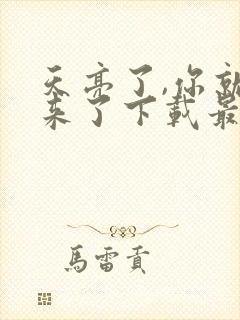 天亮了,你就
来了下載最
馬雷貢